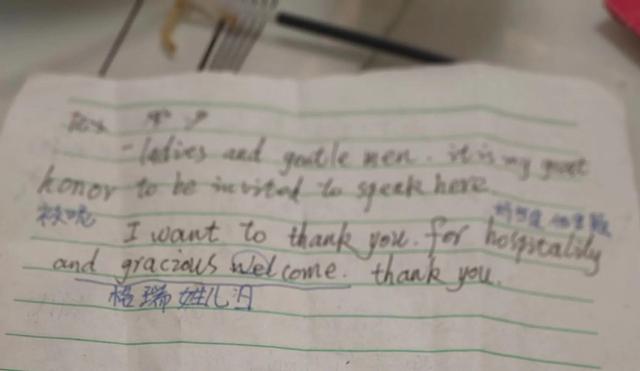 -ladies and gentle men. it is my great
honor to be invited to speak here.
I want to thank you. for hospitality
and gracious welcome. thank you.
格瑞姓儿汨